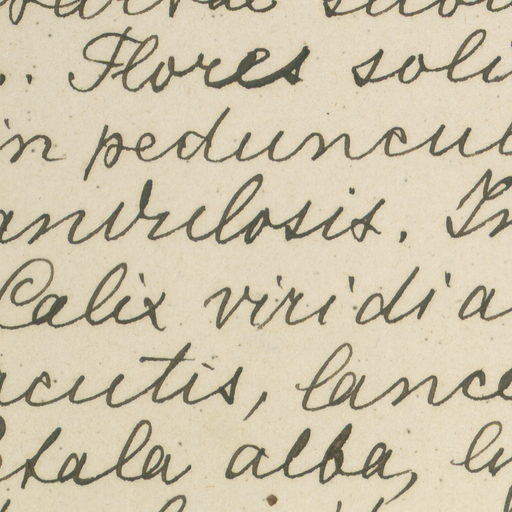 .. Flores soli
in peduncul
andulosis. In
Calix viridi a
acutis, lance
etala alba, li